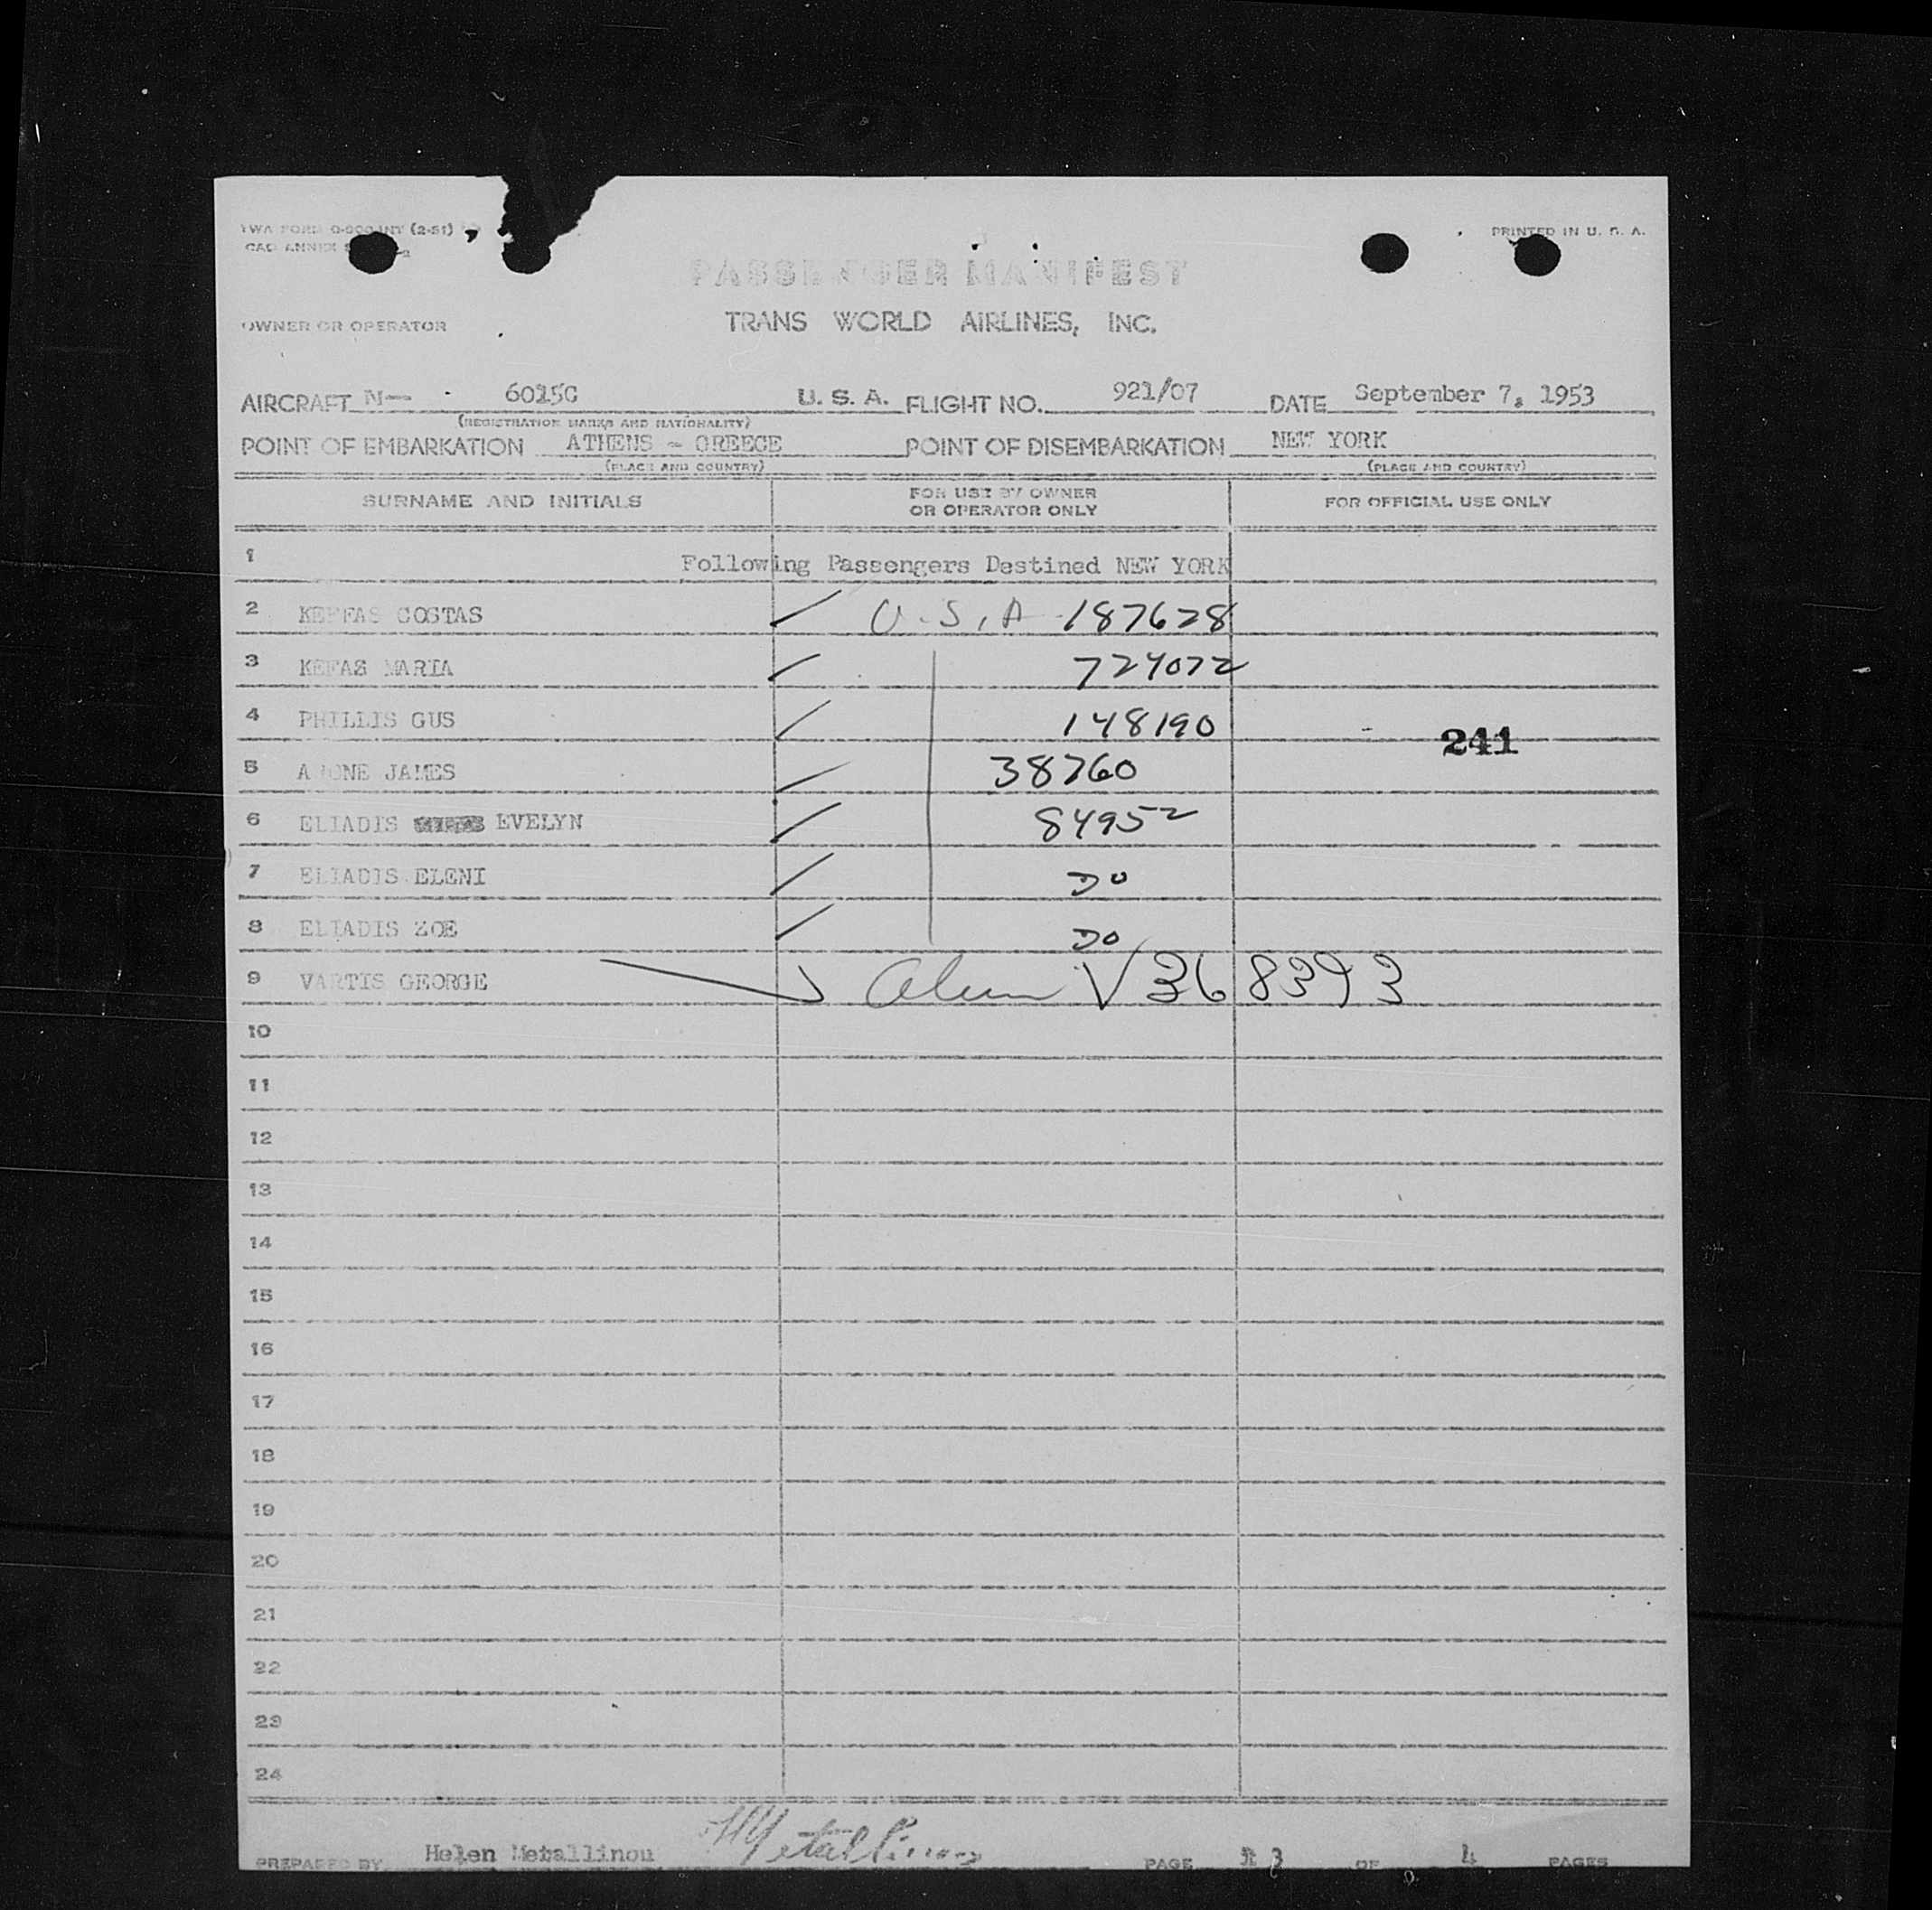 TWA FORM O-900-INT (2-51)
PRINTED IN U. S. A.
PASSENGER MANIFEST
OWNER OR OPERATOR
TRANS WORLD AIRLINES, INC.
AIRCRAFT N— 6015C U. S. A. FLIGHT NO. 921/07 DATE September 7, 1953
(REGISTRATION MARKS AND NATIONALITY)
POINT OF EMBARKATION ATHENS - GREECE POINT OF DISEMBARKATION NEW YORK
(PLACE AND COUNTRY) (PLACE AND COUNTRY)
SURNAME AND INITIALS FOR USE BY OWNER OR OPERATOR ONLY FOR OFFICIAL USE ONLY
1 Following Passengers Destined NEW YORK
2 KEFFAS COSTAS U.S.A 187628
3 KEFAS MARIA 724072
4 PHILLIS GUS 148190
241
5 JAMES 38760
6 ELIADIS EVELYN 84952
7 ELIADIS ELENI DO
8 ELIADIS ZOE DO
9 VARTIS GEORGE Alien V368393
10
11
12
13
14
15
16
17
18
19
20
21
22
23
24
PREPARED BY Helen Metallinou HMetallinou PAGE 3 OF 4 PAGES